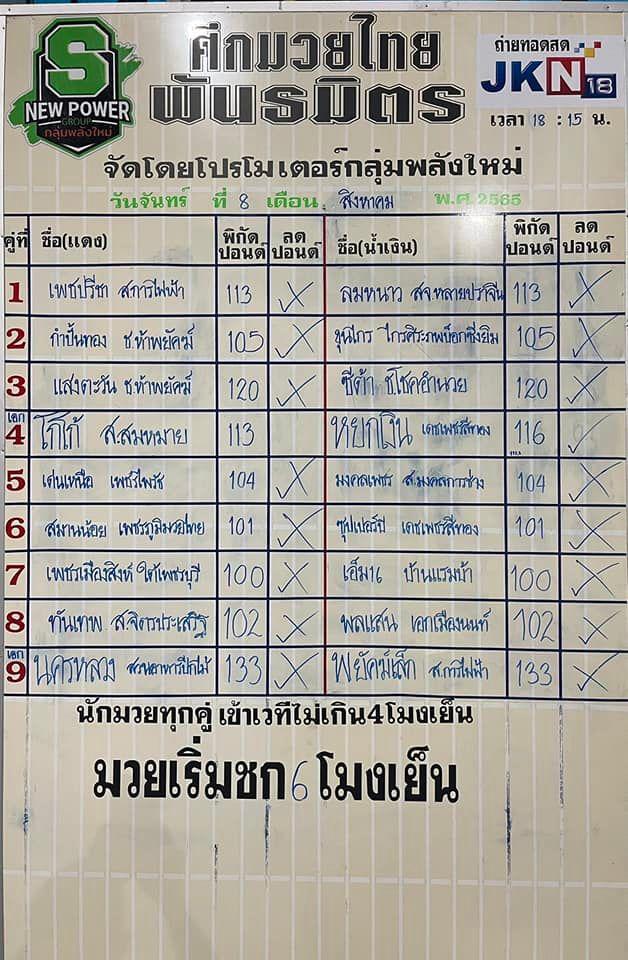 S
NEW POWER
GROUP
กลุ่มพลังใหม่
ศึกมวยไทย
พันธมิตร
ถ่ายทอดสด
JKN18
เวลา 18 : 15 น.
จัดโดยโปรโมเตอร์กลุ่มพลังใหม่
วันจันทร์ ที่ 8 เดือน สิงหาคม พ.ศ.2565
คู่ที่ ชื่อ(แดง) พิกัดปอนด์ ลดปอนด์ ชื่อ(น้ำเงิน) พิกัดปอนด์ ลดปอนด์
1 เพชปรีชา ส.การไฟฟ้า 113 ลมหนาว สจ.หลายปราจีน 113
2 กำปั้นทอง ช.ห้าพยัคฆ์ 105 ขุนไกร ไกรศิระภพบ็อกซิ่งยิม 105
3 แสงตะวัน ช.ห้าพยัคฆ์ 120 ซีต้า ช.โชคอำนวย 120
เอก 4 โกโก้ ส.สมหมาย 113 หยกเงิน เดชเพชรสีทอง 116
5 เด่นเหนือ เพชรไพรัช 104 มงคลเพชร ส.มงคลการช่าง 104
6 สมานน้อย เพชรภูมิมวยไทย 101 ซุปเปอร์ป๋ เดชเพชรสีทอง 101
7 เพชรเมืองสิงห์ ใต้เพชรบุรี 100 เอ็ม16 บ้านแรมบ้า 100
8 ทันเทพ ส.จิตรประเสริฐ 102 พลแสน เอกเมืองนนท์ 102
เอก 9 นครหลวง สวนอาหารปีกไม้ 133 พยัคฆ์เล็ก ส.การไฟฟ้า 133
นักมวยทุกคู่ เข้าเวทีไม่เกิน4โมงเย็น
มวยเริ่มชก 6 โมงเย็น